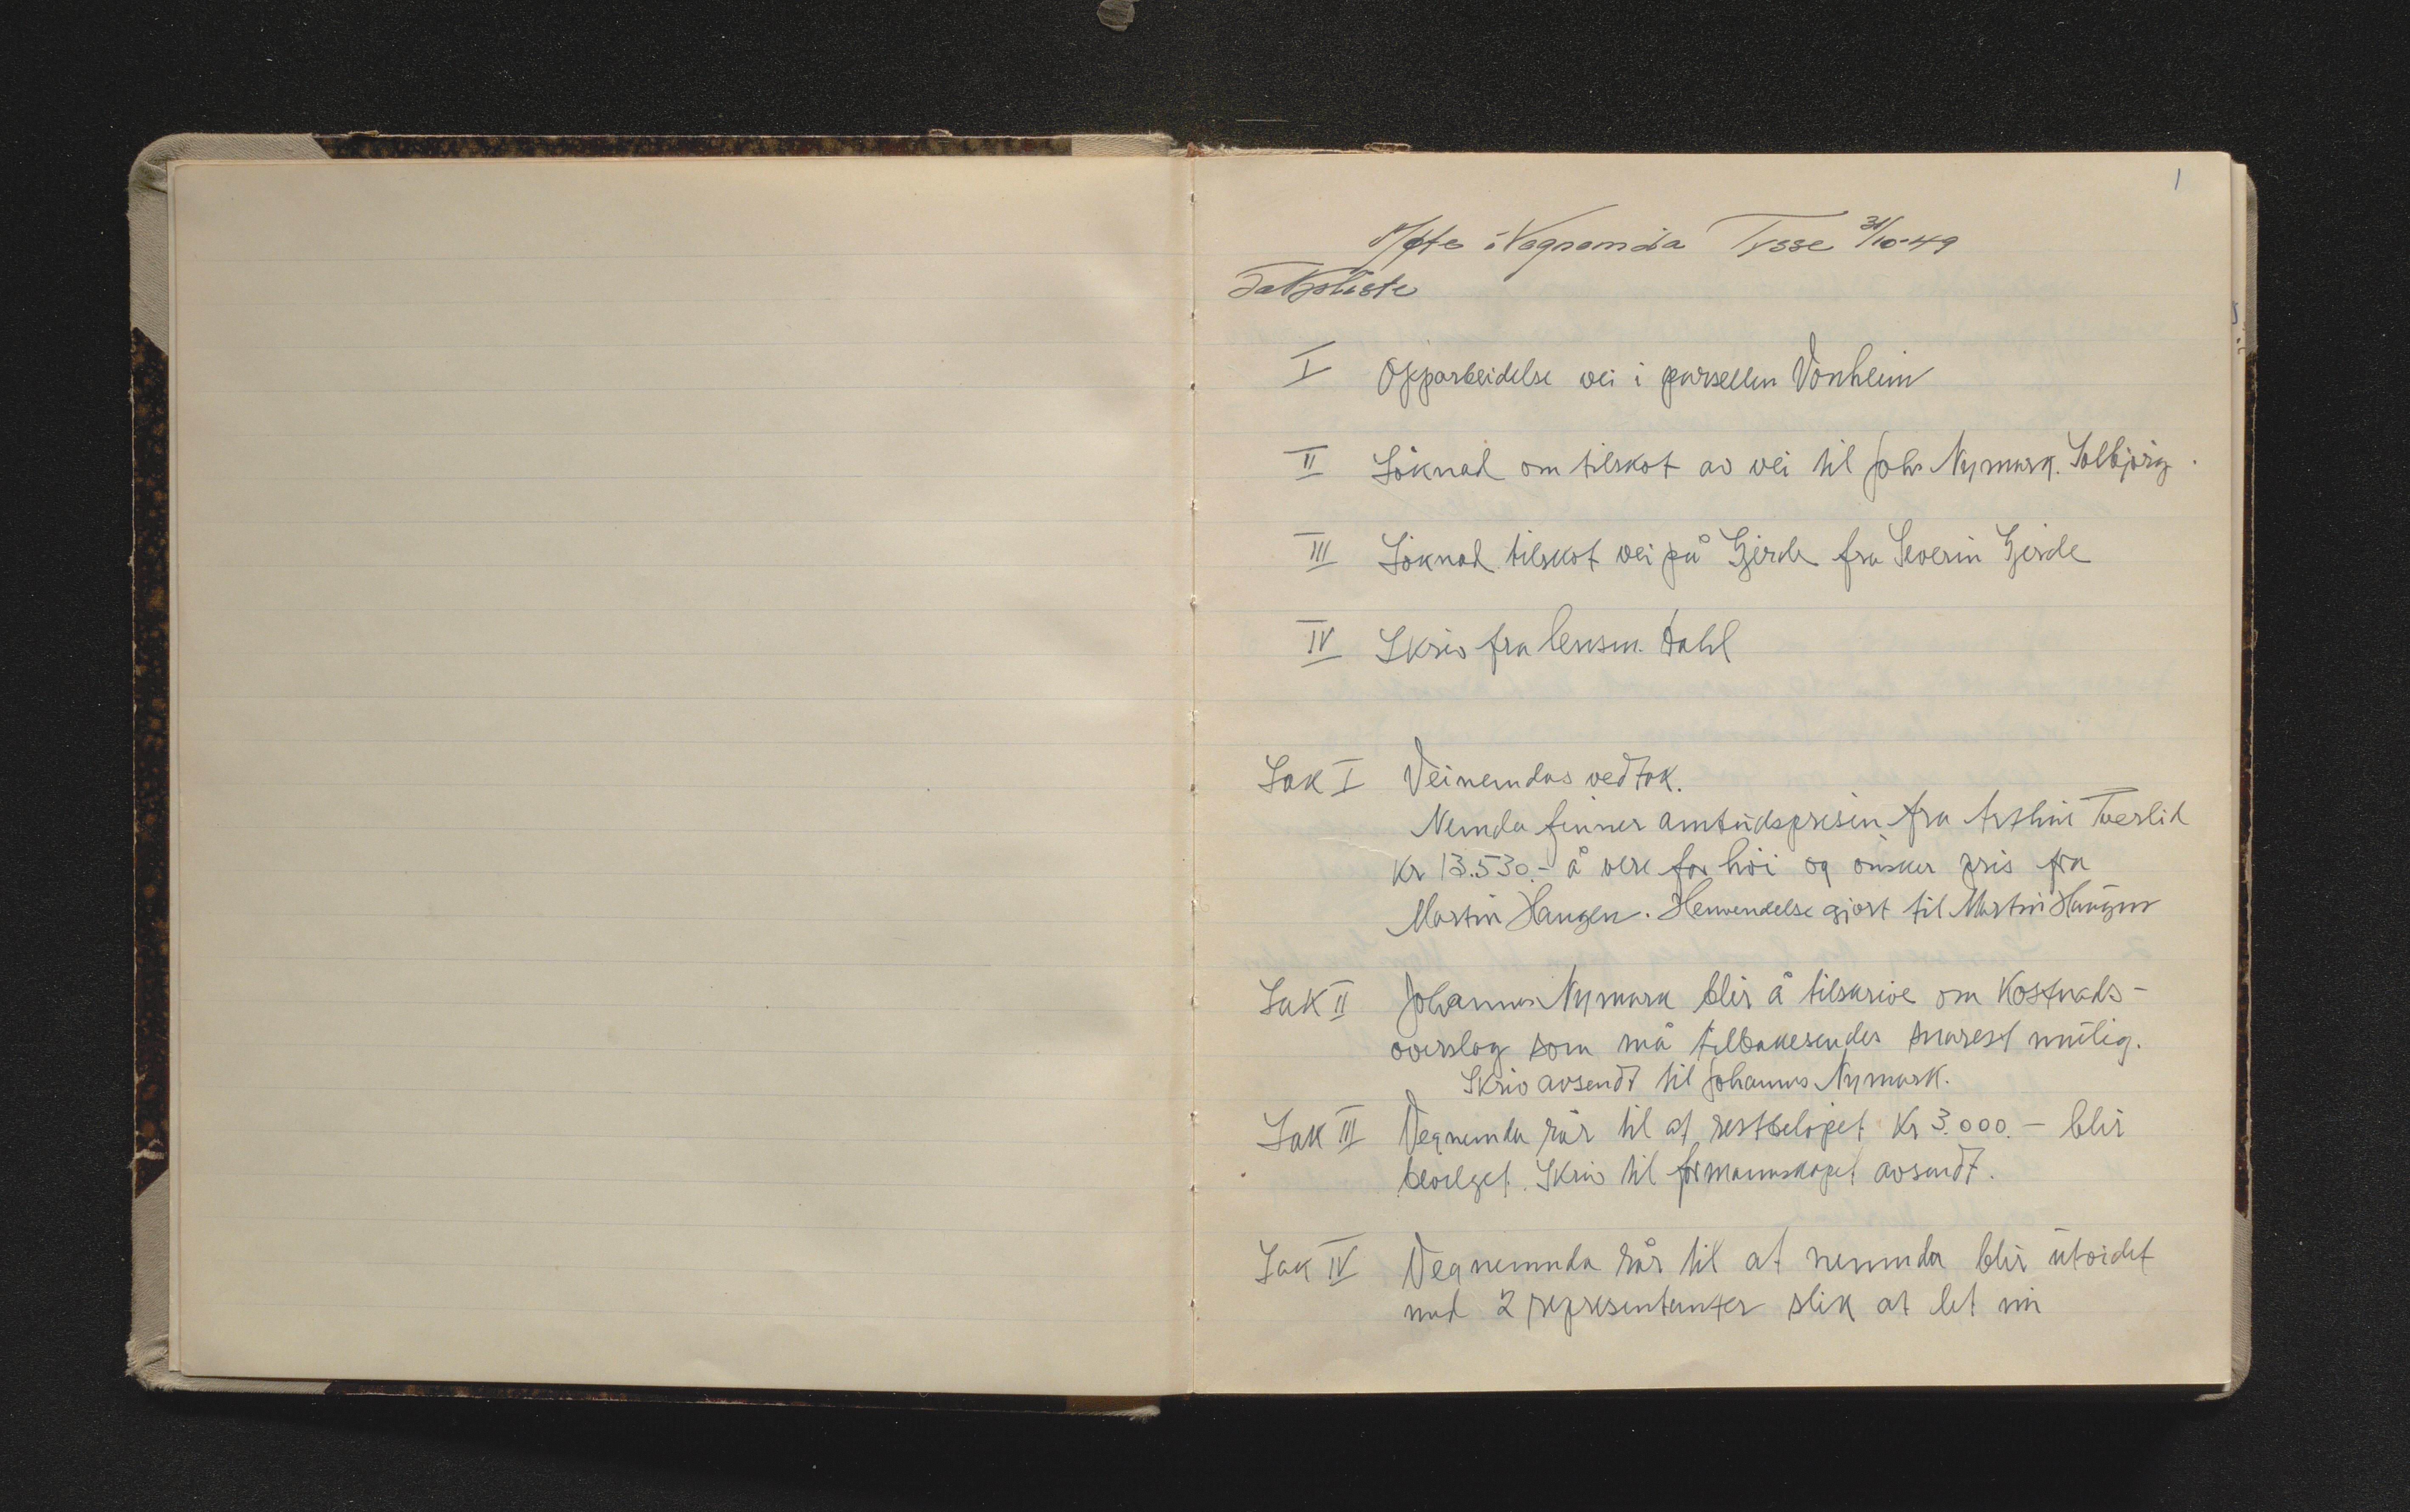 1
Møte i Vegnemda Tysse 31/10-49
Saksliste
I Opparbeidelse vei i parsellen Vonheim
II Söknad om tilskot av vei til Johs Nymark. Solbjörg.
III Söknad tilskot vei på Gjerde fra Severin Gjerde
IV Skriv fra lensm. Dahl
Sak I Veinemdas vedtak.
Nemda finner anbudsprisen fra Arthur Tverlid
Kr 13.530.- å vere for höi og önsker pris fra
Martin Haugen. Henvendelse gjort til Martin Haugen
Sak II Johannes Nymark blir å tilskrive om Kostnads-
overslag som må tilbakesendes snarest mulig.
Skriv avsendt til Johannes Nymark.
Sak III Vegnemda rår til at restbelöpet Kr 3.000.- blir
bevilget. Skriv til formannskapet avsendt.
Sak IV Vegnemnda rår til at nemnda blir utvidet
med 2 representanter slik at